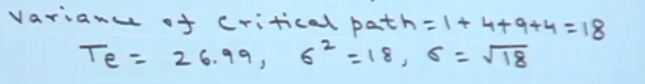 variance of critical path = 1 + 4 + 9 + 4 = 18
Te = 26.99, 6² = 18, 6 = √18